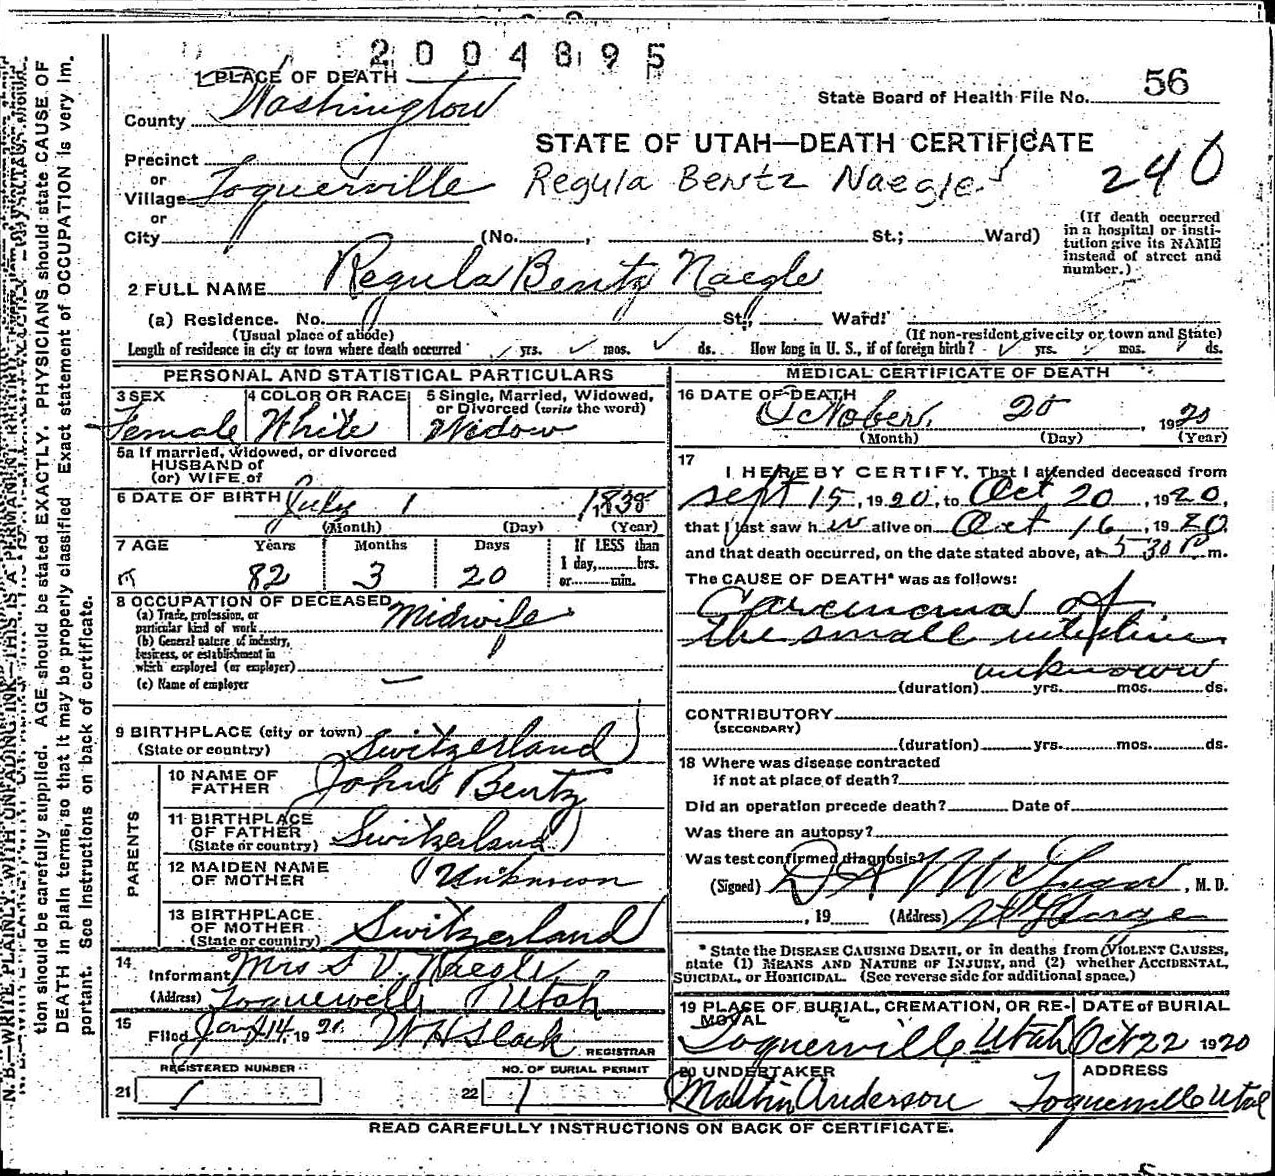 2004895
1 PLACE OF DEATH
County Washington
State Board of Health File No. 56
STATE OF UTAH—DEATH CERTIFICATE
240
Precinct
or
Village Toquerville
Regula Bentz Naegle
or
City (No. , St.; Ward)
(If death occurred
in a hospital or insti-
tution give its NAME
instead of street and
number.)
2 FULL NAME Regula Bentz Naegle
(a) Residence. No. St., Ward.
(Usual place of abode) (If non-resident give city or town and State)
Length of residence in city or town where death occurred yrs. mos. ds. How long in U. S., if of foreign birth? yrs. mos. ds.
PERSONAL AND STATISTICAL PARTICULARS
3 SEX Female
4 COLOR OR RACE White
5 Single, Married, Widowed,
or Divorced (write the word)
Widow
5a If married, widowed, or divorced
HUSBAND of
(or) WIFE of
6 DATE OF BIRTH July 1 1838
(Month) (Day) (Year)
7 AGE Years Months Days If LESS than
1 day, hrs.
82 3 20 or min.
8 OCCUPATION OF DECEASED
(a) Trade, profession, or
particular kind of work Midwife
(b) General nature of industry,
business, or establishment in
which employed (or employer)
(c) Name of employer —
9 BIRTHPLACE (city or town)
(State or country) Switzerland
PARENTS
10 NAME OF
FATHER John Bentz
11 BIRTHPLACE
OF FATHER
(State or country) Switzerland
12 MAIDEN NAME
OF MOTHER Unknown
13 BIRTHPLACE
OF MOTHER
(State or country) Switzerland
14
Informant Mrs S V. Naegle
(Address) Toquerville Utah
15
Filed Jan 14, 1921. W H Slack
REGISTRAR
REGISTERED NUMBER NO. OF BURIAL PERMIT
21 1 22 1
MEDICAL CERTIFICATE OF DEATH
16 DATE OF DEATH
October 20, 1920
(Month) (Day) (Year)
17
I HEREBY CERTIFY, That I attended deceased from
Sept 15, 1920, to Oct 20, 1920,
that I last saw her alive on Oct 16, 1920
and that death occurred, on the date stated above, at 5 30 P m.
The CAUSE OF DEATH* was as follows:
Carcinoma of
the small intestine
unknown
(duration) yrs. mos. ds.
CONTRIBUTORY
(SECONDARY)
(duration) yrs. mos. ds.
18 Where was disease contracted
if not at place of death?
Did an operation precede death? Date of
Was there an autopsy?
Was test confirmed diagnosis?
(Signed) , M. D.
, 19 (Address)
* State the DISEASE CAUSING DEATH, or in deaths from VIOLENT CAUSES,
state (1) MEANS AND NATURE OF INJURY, and (2) whether ACCIDENTAL,
SUICIDAL, or HOMICIDAL. (See reverse side for additional space.)
19 PLACE OF BURIAL, CREMATION, OR RE-
MOVAL
Toquerville Utah
DATE of BURIAL
Oct 22 1920
20 UNDERTAKER
Martin Anderson
ADDRESS
Toquerville Utah
READ CAREFULLY INSTRUCTIONS ON BACK OF CERTIFICATE.
N. B.—WRITE PLAINLY, WITH UNFADING INK—THIS IS A PERMANENT
tion should be carefully supplied. AGE should be stated EXACTLY. PHYSICIANS should state CAUSE OF
DEATH in plain terms, so that it may be properly classified. Exact statement of OCCUPATION is very im-
portant. See instructions on back of certificate.